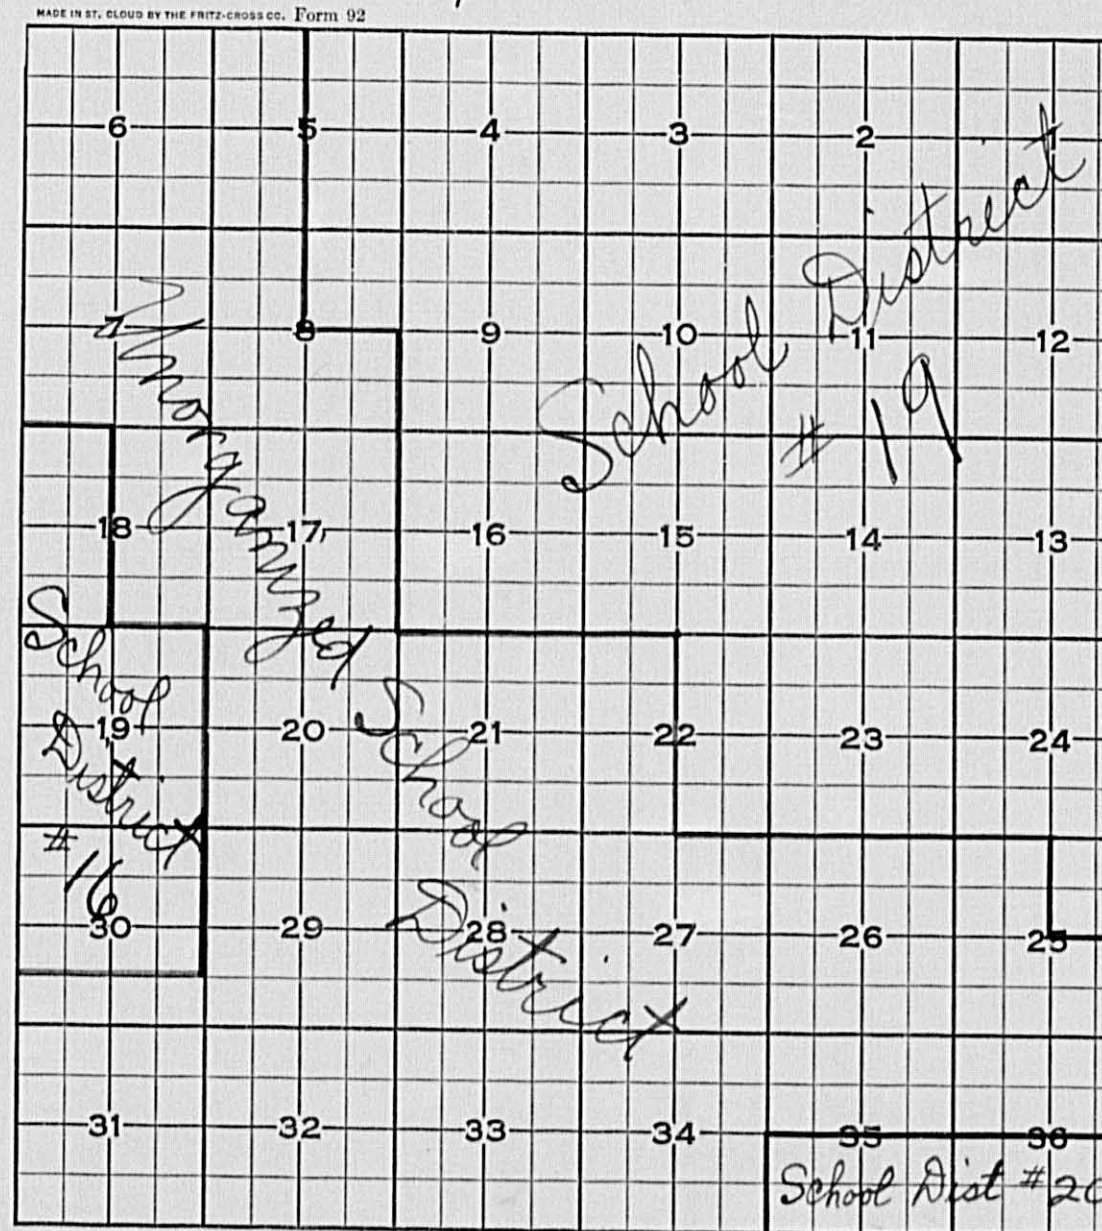 MADE IN ST. CLOUD BY THE FRITZ-CROSS CO. Form 92
6 5 4 3 2
7 8 9 10 11 12
18 17 16 15 14 13
19 20 21 22 23 24
30 29 28 27 26 25
31 32 33 34 35 36
School District
# 19
Unorganized School District
School
District
# 16
School Dist # 20